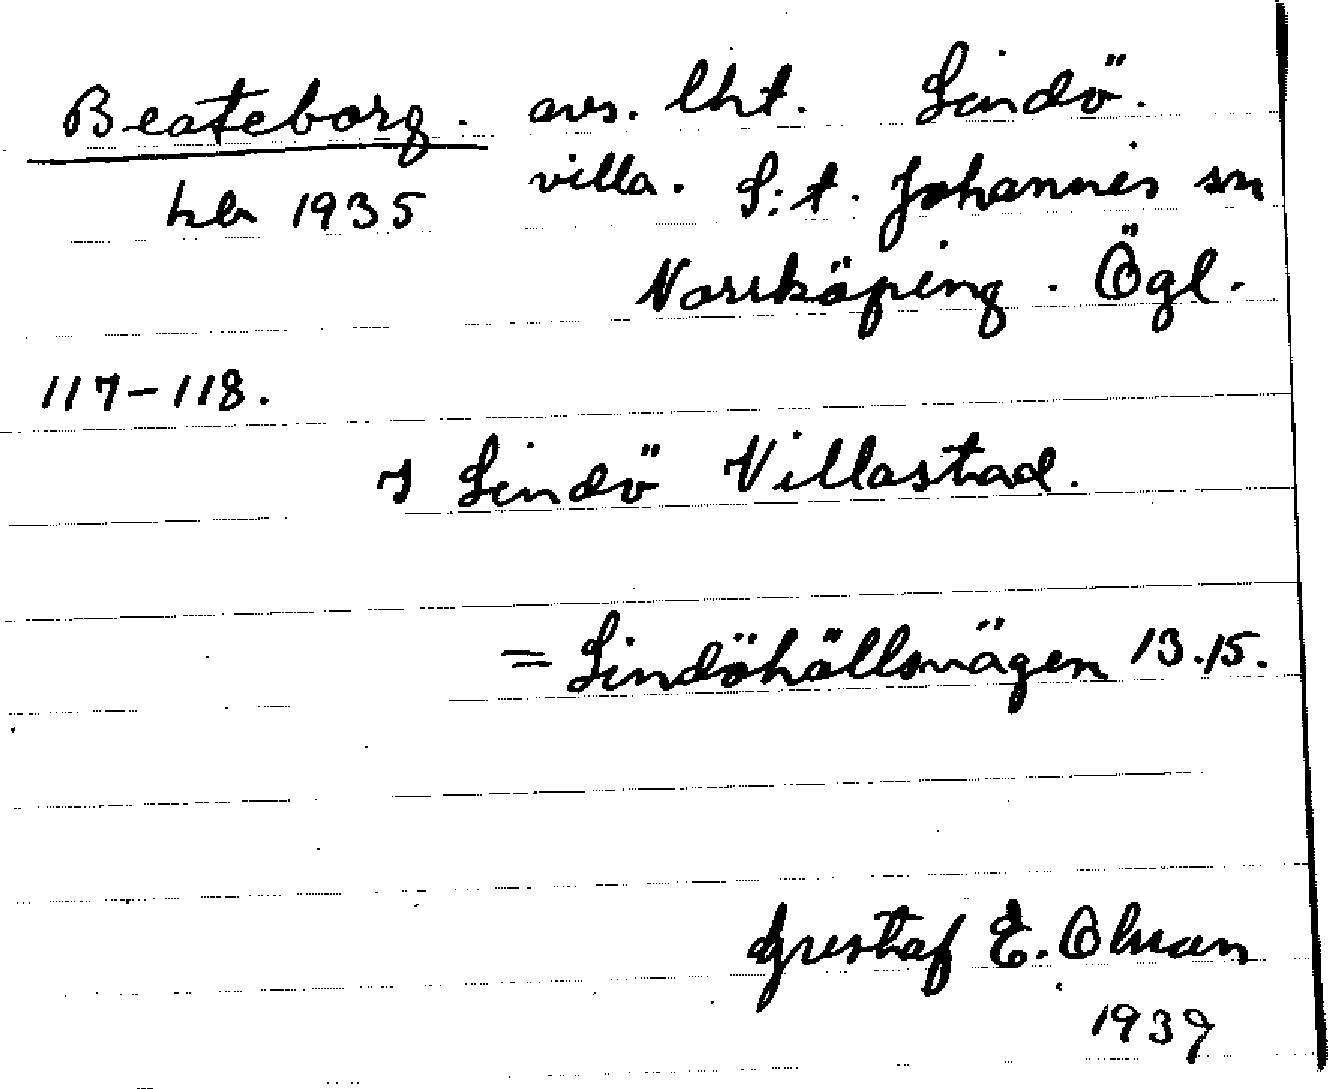 Beateborg. avs. lht. Lindö.
hla 1935 villa. S:t. Johannes sn
Norrköping. Ögl.
117-118.
I Lindö Villastad.
= Lindöhällsvägen 13.15.
Gustaf E. Ohman
1939